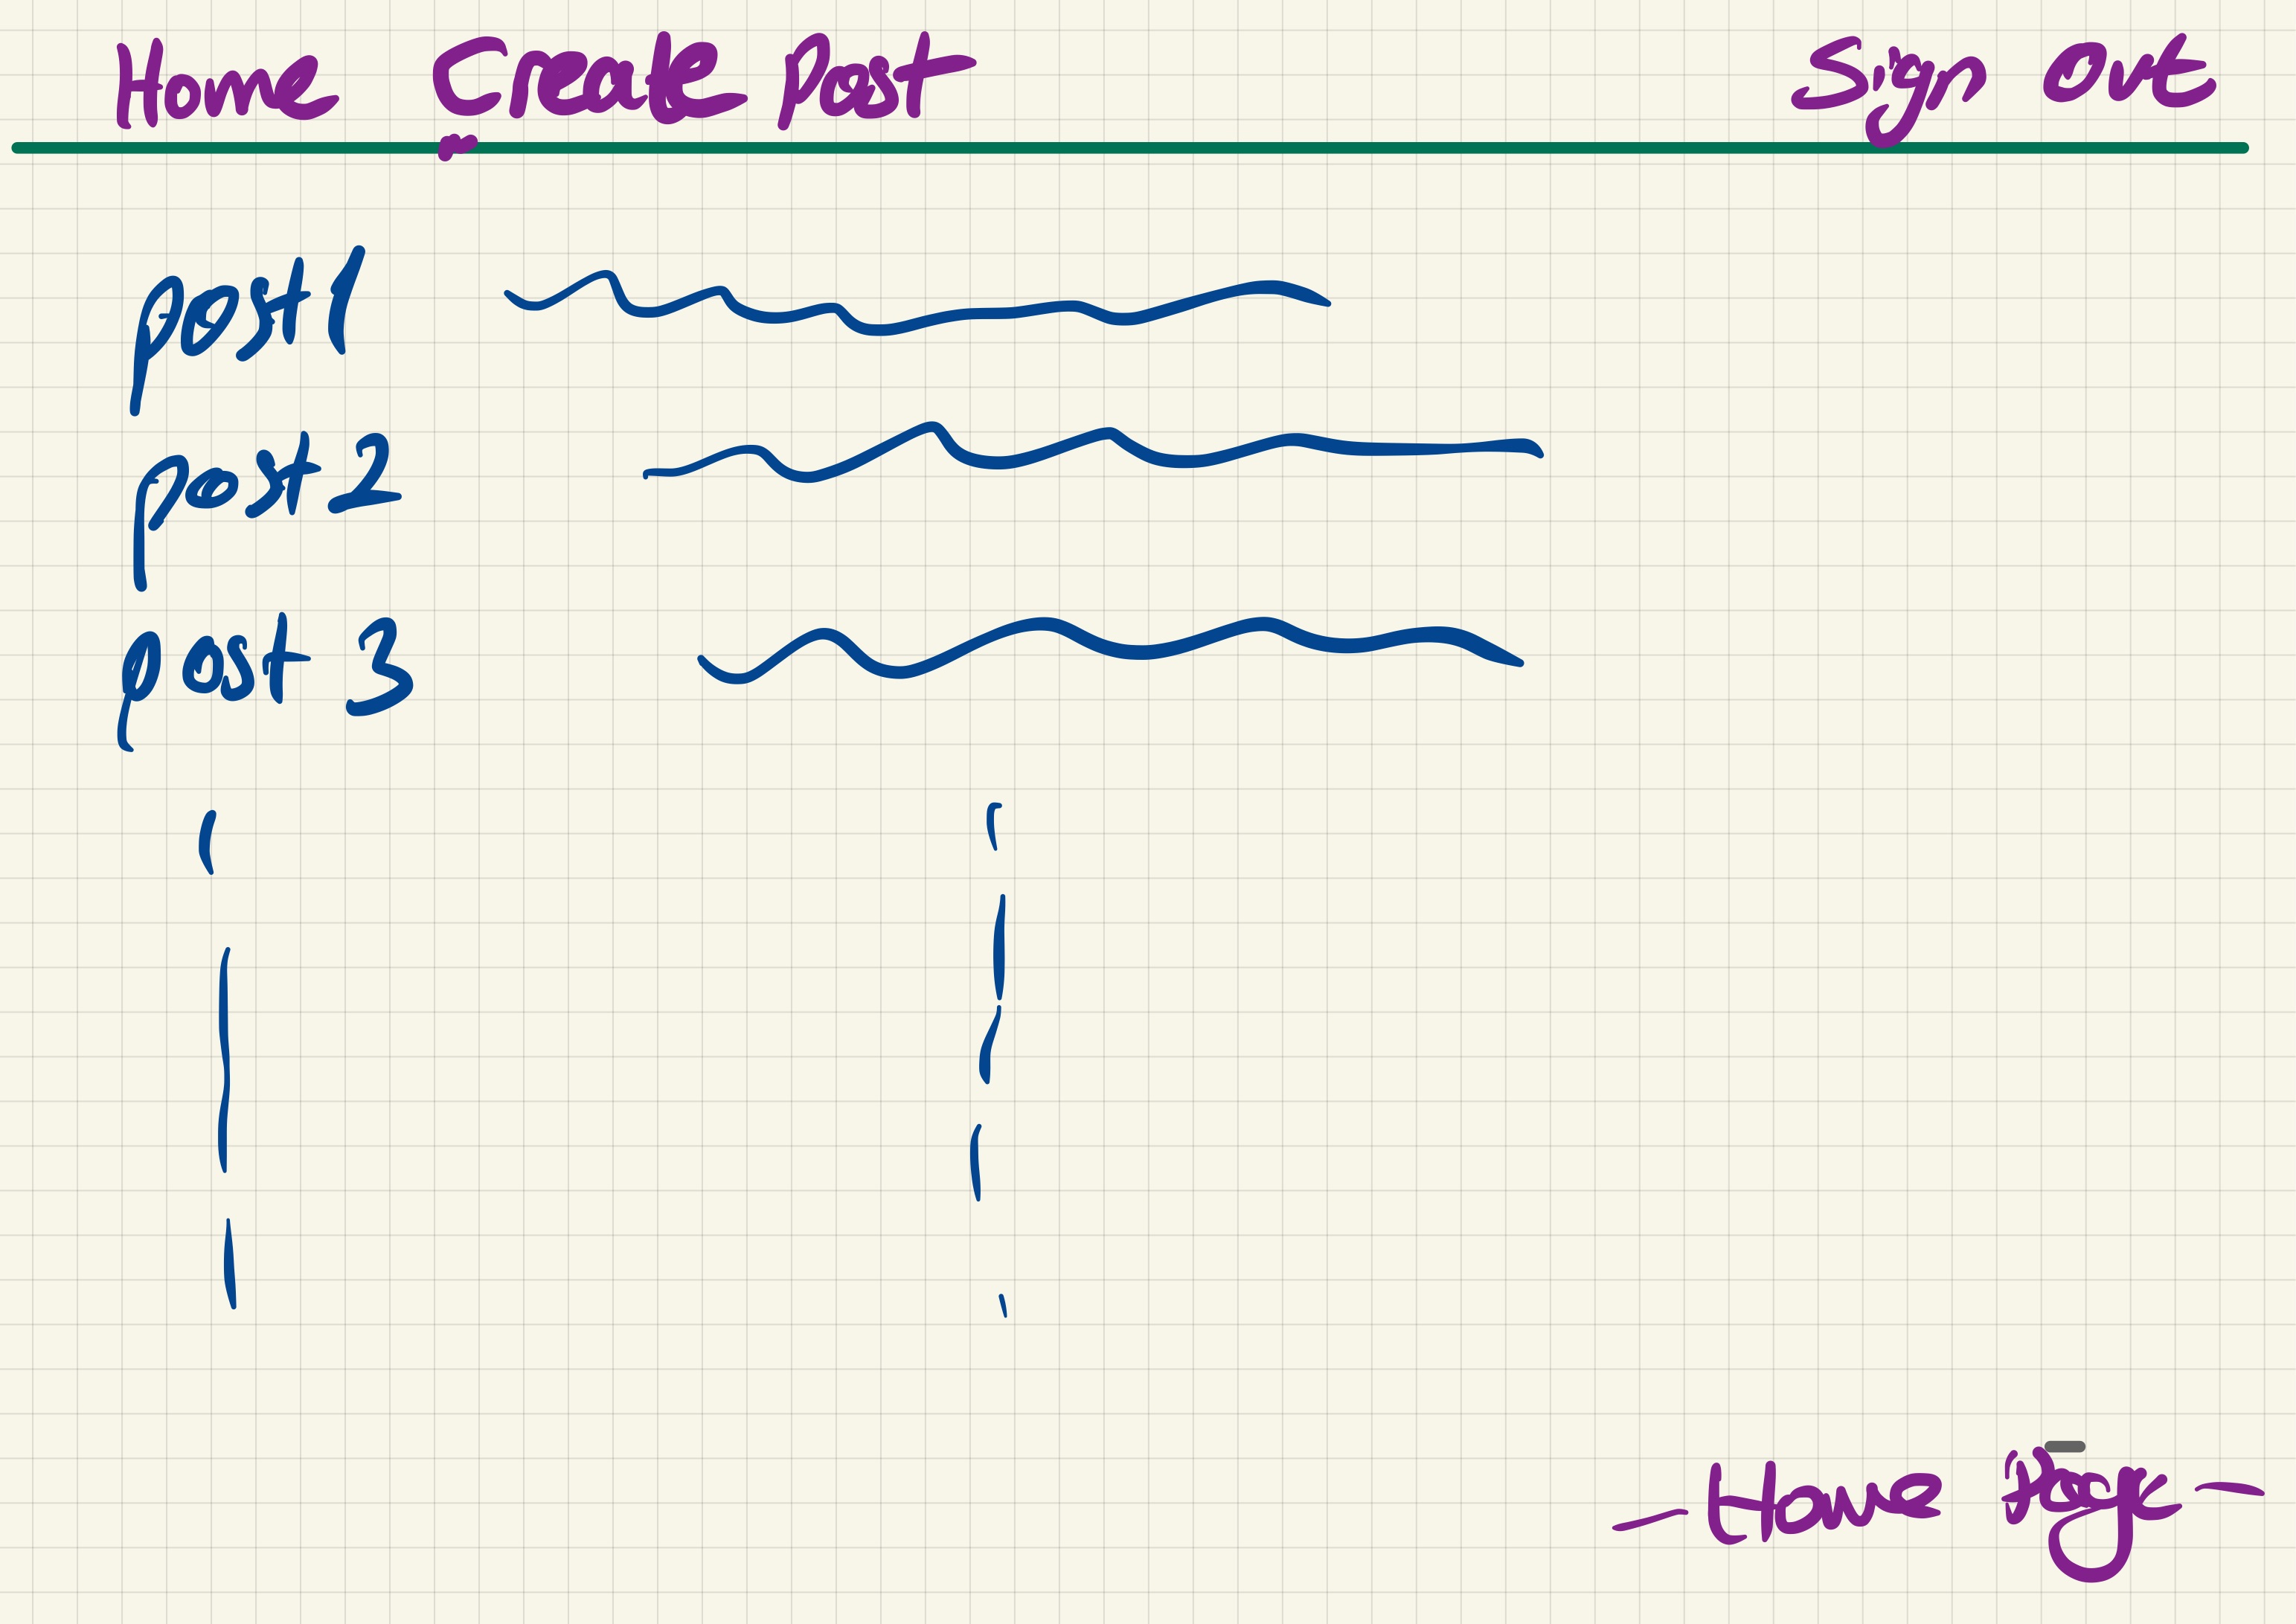 Home Create post Sign out
post 1
post 2
post 3
- Home Page -